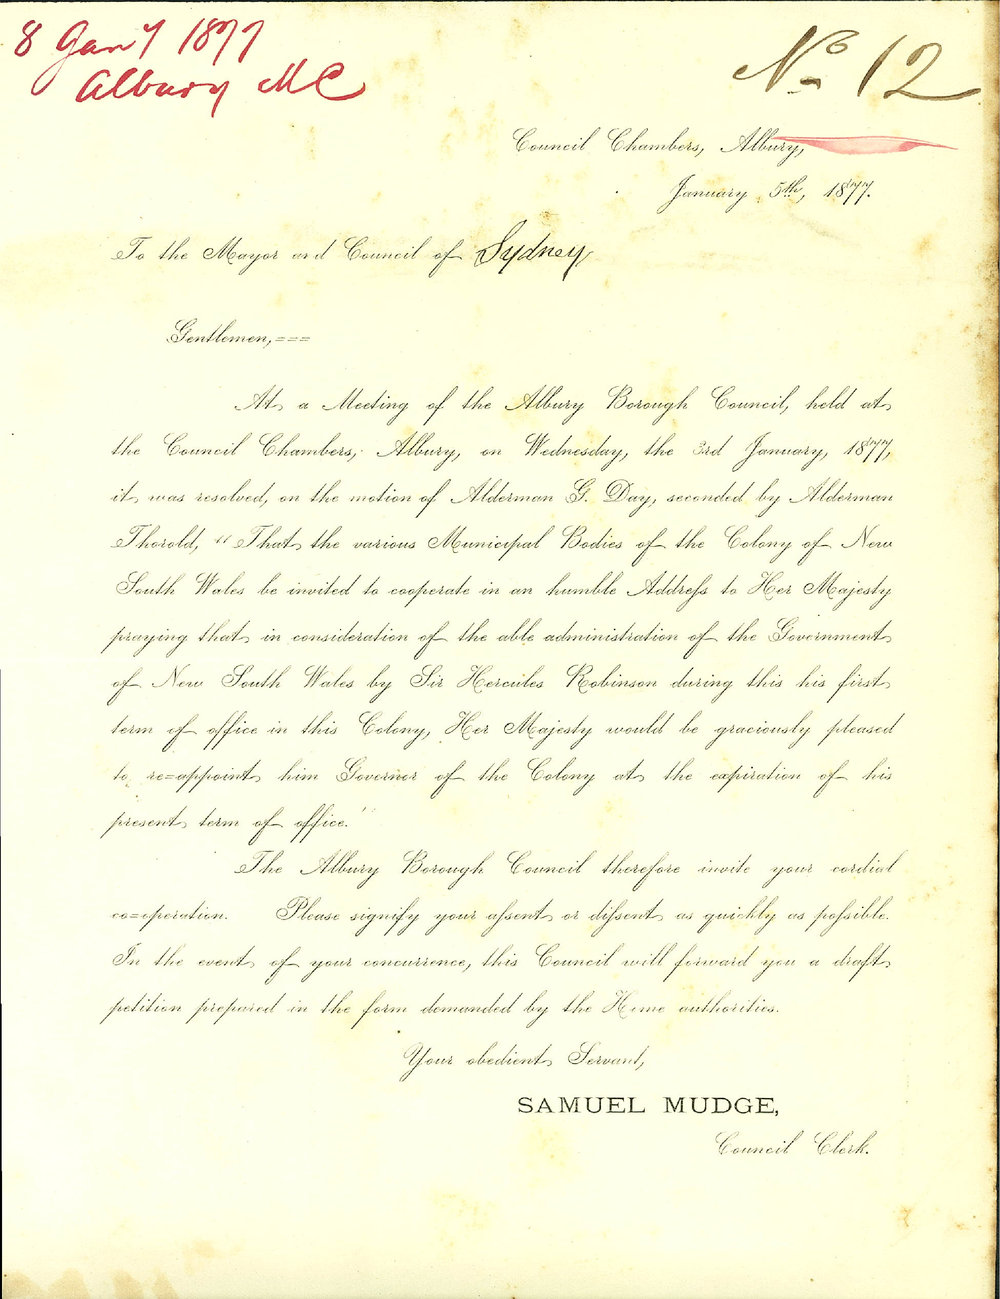 8 Jany 1877
Albury MC
No 12
Council Chambers, Albury,
January 5th, 1877.
To the Mayor and Council of Sydney
Gentlemen,===
At a Meeting of the Albury Borough Council, held at
the Council Chambers, Albury, on Wednesday, the 3rd January, 1877,
it was resolved, on the motion of Alderman G. Day, seconded by Alderman
Thorold, "That the various Municipal Bodies of the Colony of New
South Wales be invited to cooperate in an humble Addreſs to Her Majesty
praying that in consideration of the able administration of the Government
of New South Wales by Sir Hercules Robinson during this his first
term of office in this Colony, Her Majesty would be graciously pleased
to re=appoint him Governor of the Colony at the expiration of his
present term of office."
The Albury Borough Council therefore invite your cordial
co=operation. Please signify your aſsent or diſsent as quickly as poſsible.
In the event of your concurrence, this Council will forward you a draft
petition prepared in the form demanded by the Home authorities.
Your obedient Servant,
SAMUEL MUDGE,
Council Clerk.